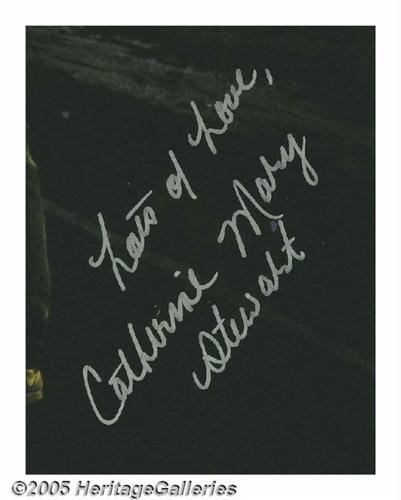 Lots of Love,
Catherine Mary
Stewart
©2005 HeritageGalleries